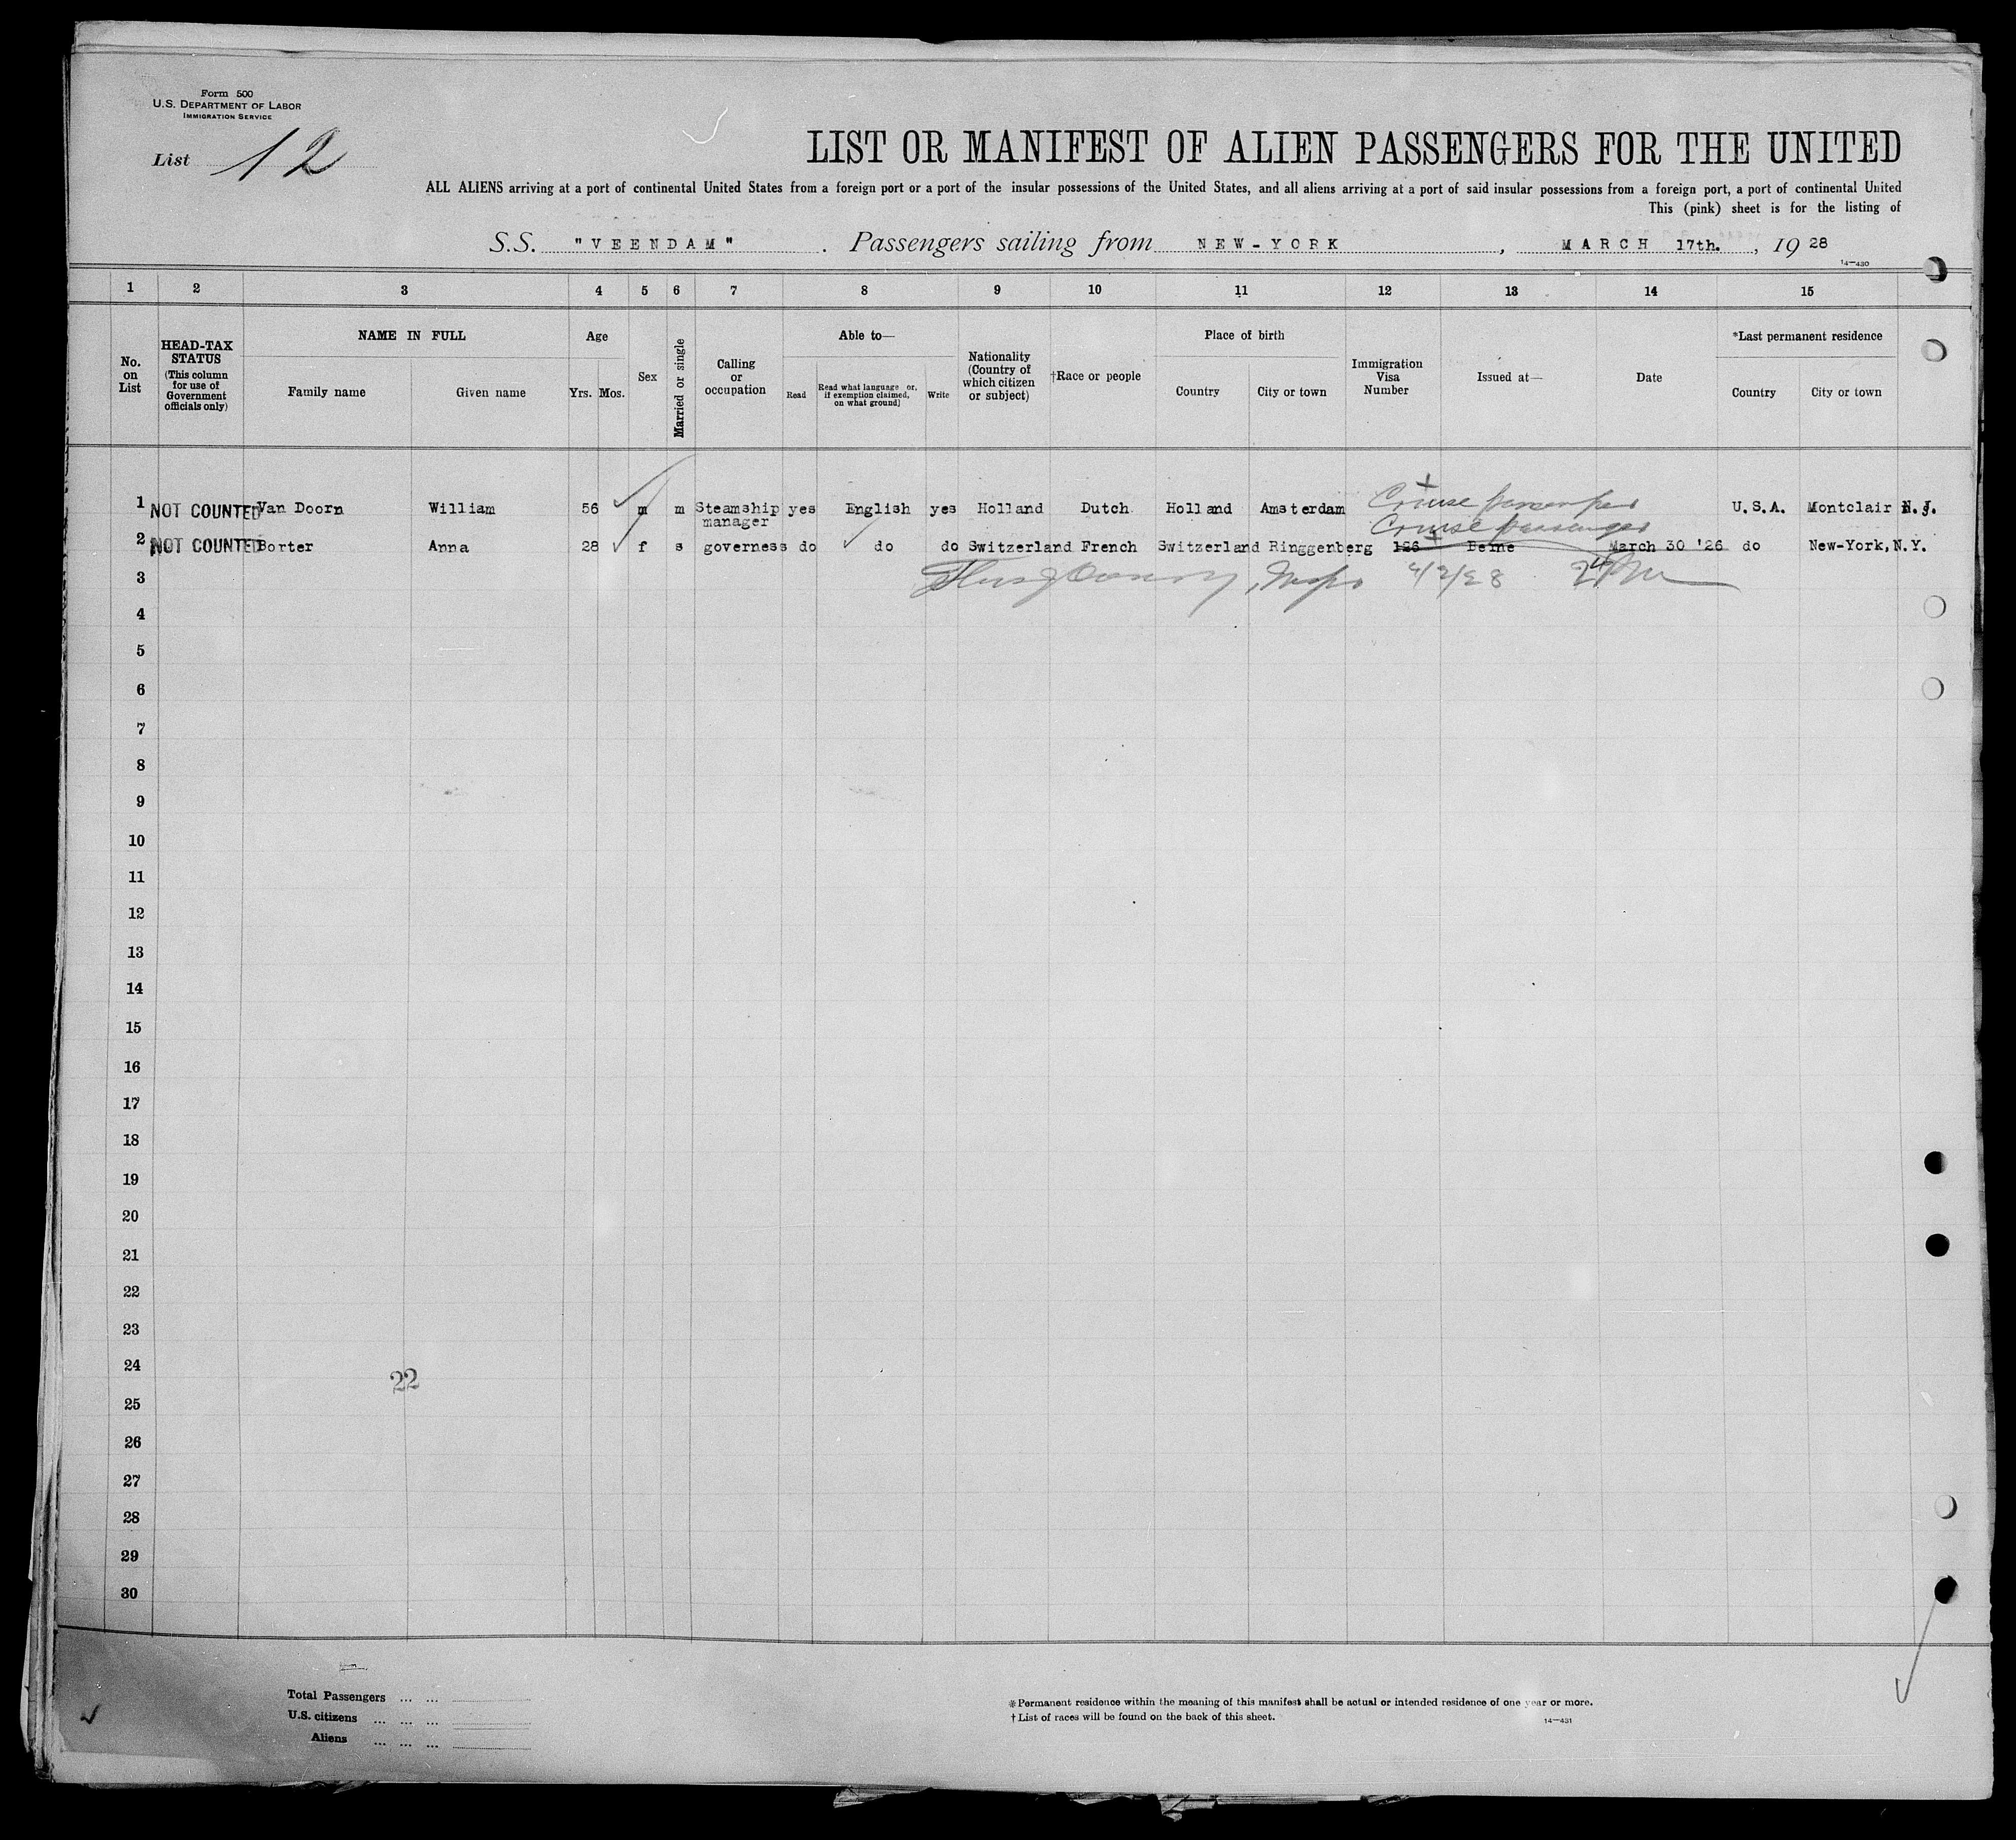 Form 500
U.S. DEPARTMENT OF LABOR
IMMIGRATION SERVICE
List 12
LIST OR MANIFEST OF ALIEN PASSENGERS FOR THE UNITED
ALL ALIENS arriving at a port of continental United States from a foreign port or a port of the insular possessions of the United States, and all aliens arriving at a port of said insular possessions from a foreign port, a port of continental United
This (pink) sheet is for the listing of
S.S. "VEENDAM" . Passengers sailing from NEW-YORK , MARCH 17th. , 19 28
14—430
1 2 3 4 5 6 7 8 9 10 11 12 13 14 15
No. on List
HEAD-TAX STATUS (This column for use of Government officials only)
NAME IN FULL
Family name Given name
Age
Yrs. Mos.
Sex
Married or single
Calling or occupation
Able to—
Read Read what language or, if exemption claimed, on what ground] Write
Nationality (Country of which citizen or subject)
†Race or people
Place of birth
Country City or town
Immigration Visa Number
Issued at—
Date
*Last permanent residence
Country City or town
1 NOT COUNTED Van Doorn William 56 m m Steamship manager yes English yes Holland Dutch Holland Amsterdam Cruise passenger U.S.A. Montclair N.J.
Cruise passenger
2 NOT COUNTED Borter Anna 28 f s governess do do do Switzerland French Switzerland Ringgenberg 126 Berne March 30 '26 do New-York, N.Y.
3 4/2/28
4
5
6
7
8
9
10
11
12
13
14
15
16
17
18
19
20
21
22
23
24
22
25
26
27
28
29
30
Total Passengers ... ...
U.S. citizens ... ... ...
Aliens ... ... ...
*Permanent residence within the meaning of this manifest shall be actual or intended residence of one year or more.
†List of races will be found on the back of this sheet.
14—431